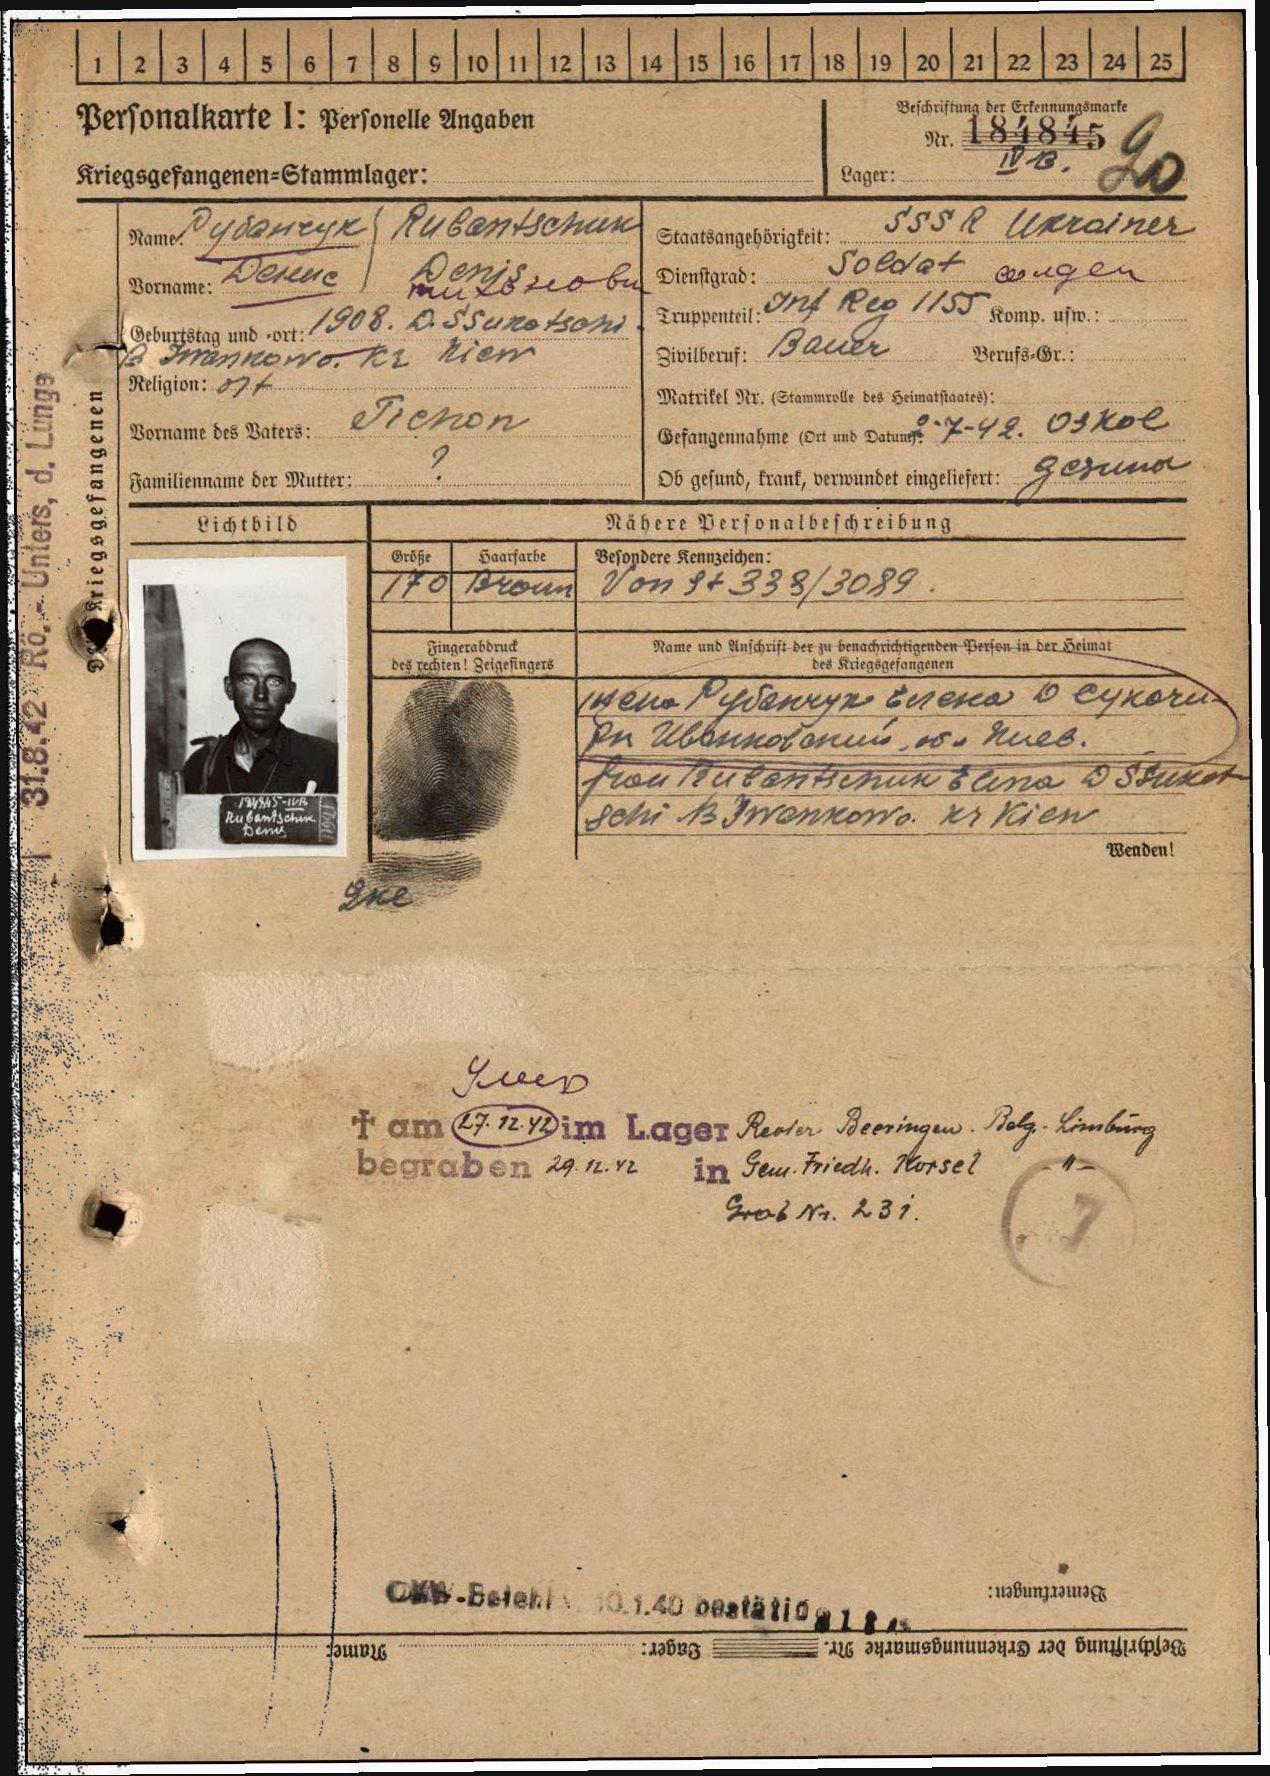 1 2 3 4 5 6 7 8 9 10 11 12 13 14 15 16 17 18 19 20 21 22 23 24 25
Personalkarte I: Personelle Angaben
Kriegsgefangenen-Stammlager:
Beschriftung der Erkennungsmarke
Nr. 184845
Lager: IV B.
Des Kriegsgefangenen
31.8.42 Rö.-Unters. d. Lunge
Name: Рубанчук Rubantschuk
Vorname: Денис Denis
Тихонович
Geburtstag und -ort: 1908. D. Ssukatschi
B Iwankowo. Kr Kiew
Religion: ort
Vorname des Vaters: Tichon
Familienname der Mutter: ?
Staatsangehörigkeit: SSSR Ukrainer
Dienstgrad: Soldat
Truppenteil: Inf Reg 1155 Komp. usw.:
Zivilberuf: Bauer Berufs-Gr.:
Matrikel Nr. (Stammrolle des Heimatstaates):
Gefangennahme (Ort und Datum): 2-7-42. Oskol
Ob gesund, krank, verwundet eingeliefert: gesund
Lichtbild
Nähere Personalbeschreibung
Größe Haarfarbe Besondere Kennzeichen:
170 Braun Von St 338/3089.
Fingerabdruck
des rechten! Zeigefingers
Name und Anschrift der zu benachrichtigenden Person in der Heimat
des Kriegsgefangenen
жена Рубанчук Елена D Сукачи
рн Иванковский, об. Киев.
frau Rubantschuk Elena D Ssukat
schi B Iwankowo. Kr Kiew
Wenden!
184845-IVB
Rubantschuk
Denis
Умер
† am 27.12.42 im Lager Revier Beeringen. Belg.-Limburg
begraben 29.12.42 in Gem. Friedh. Korsel -"-
Grab Nr. 231.
7
OKW-Befehl v. 10.1.40 bestätigt
Bemerkungen:
Beschriftung der Erkennungsmarke Nr. Lager: Name: